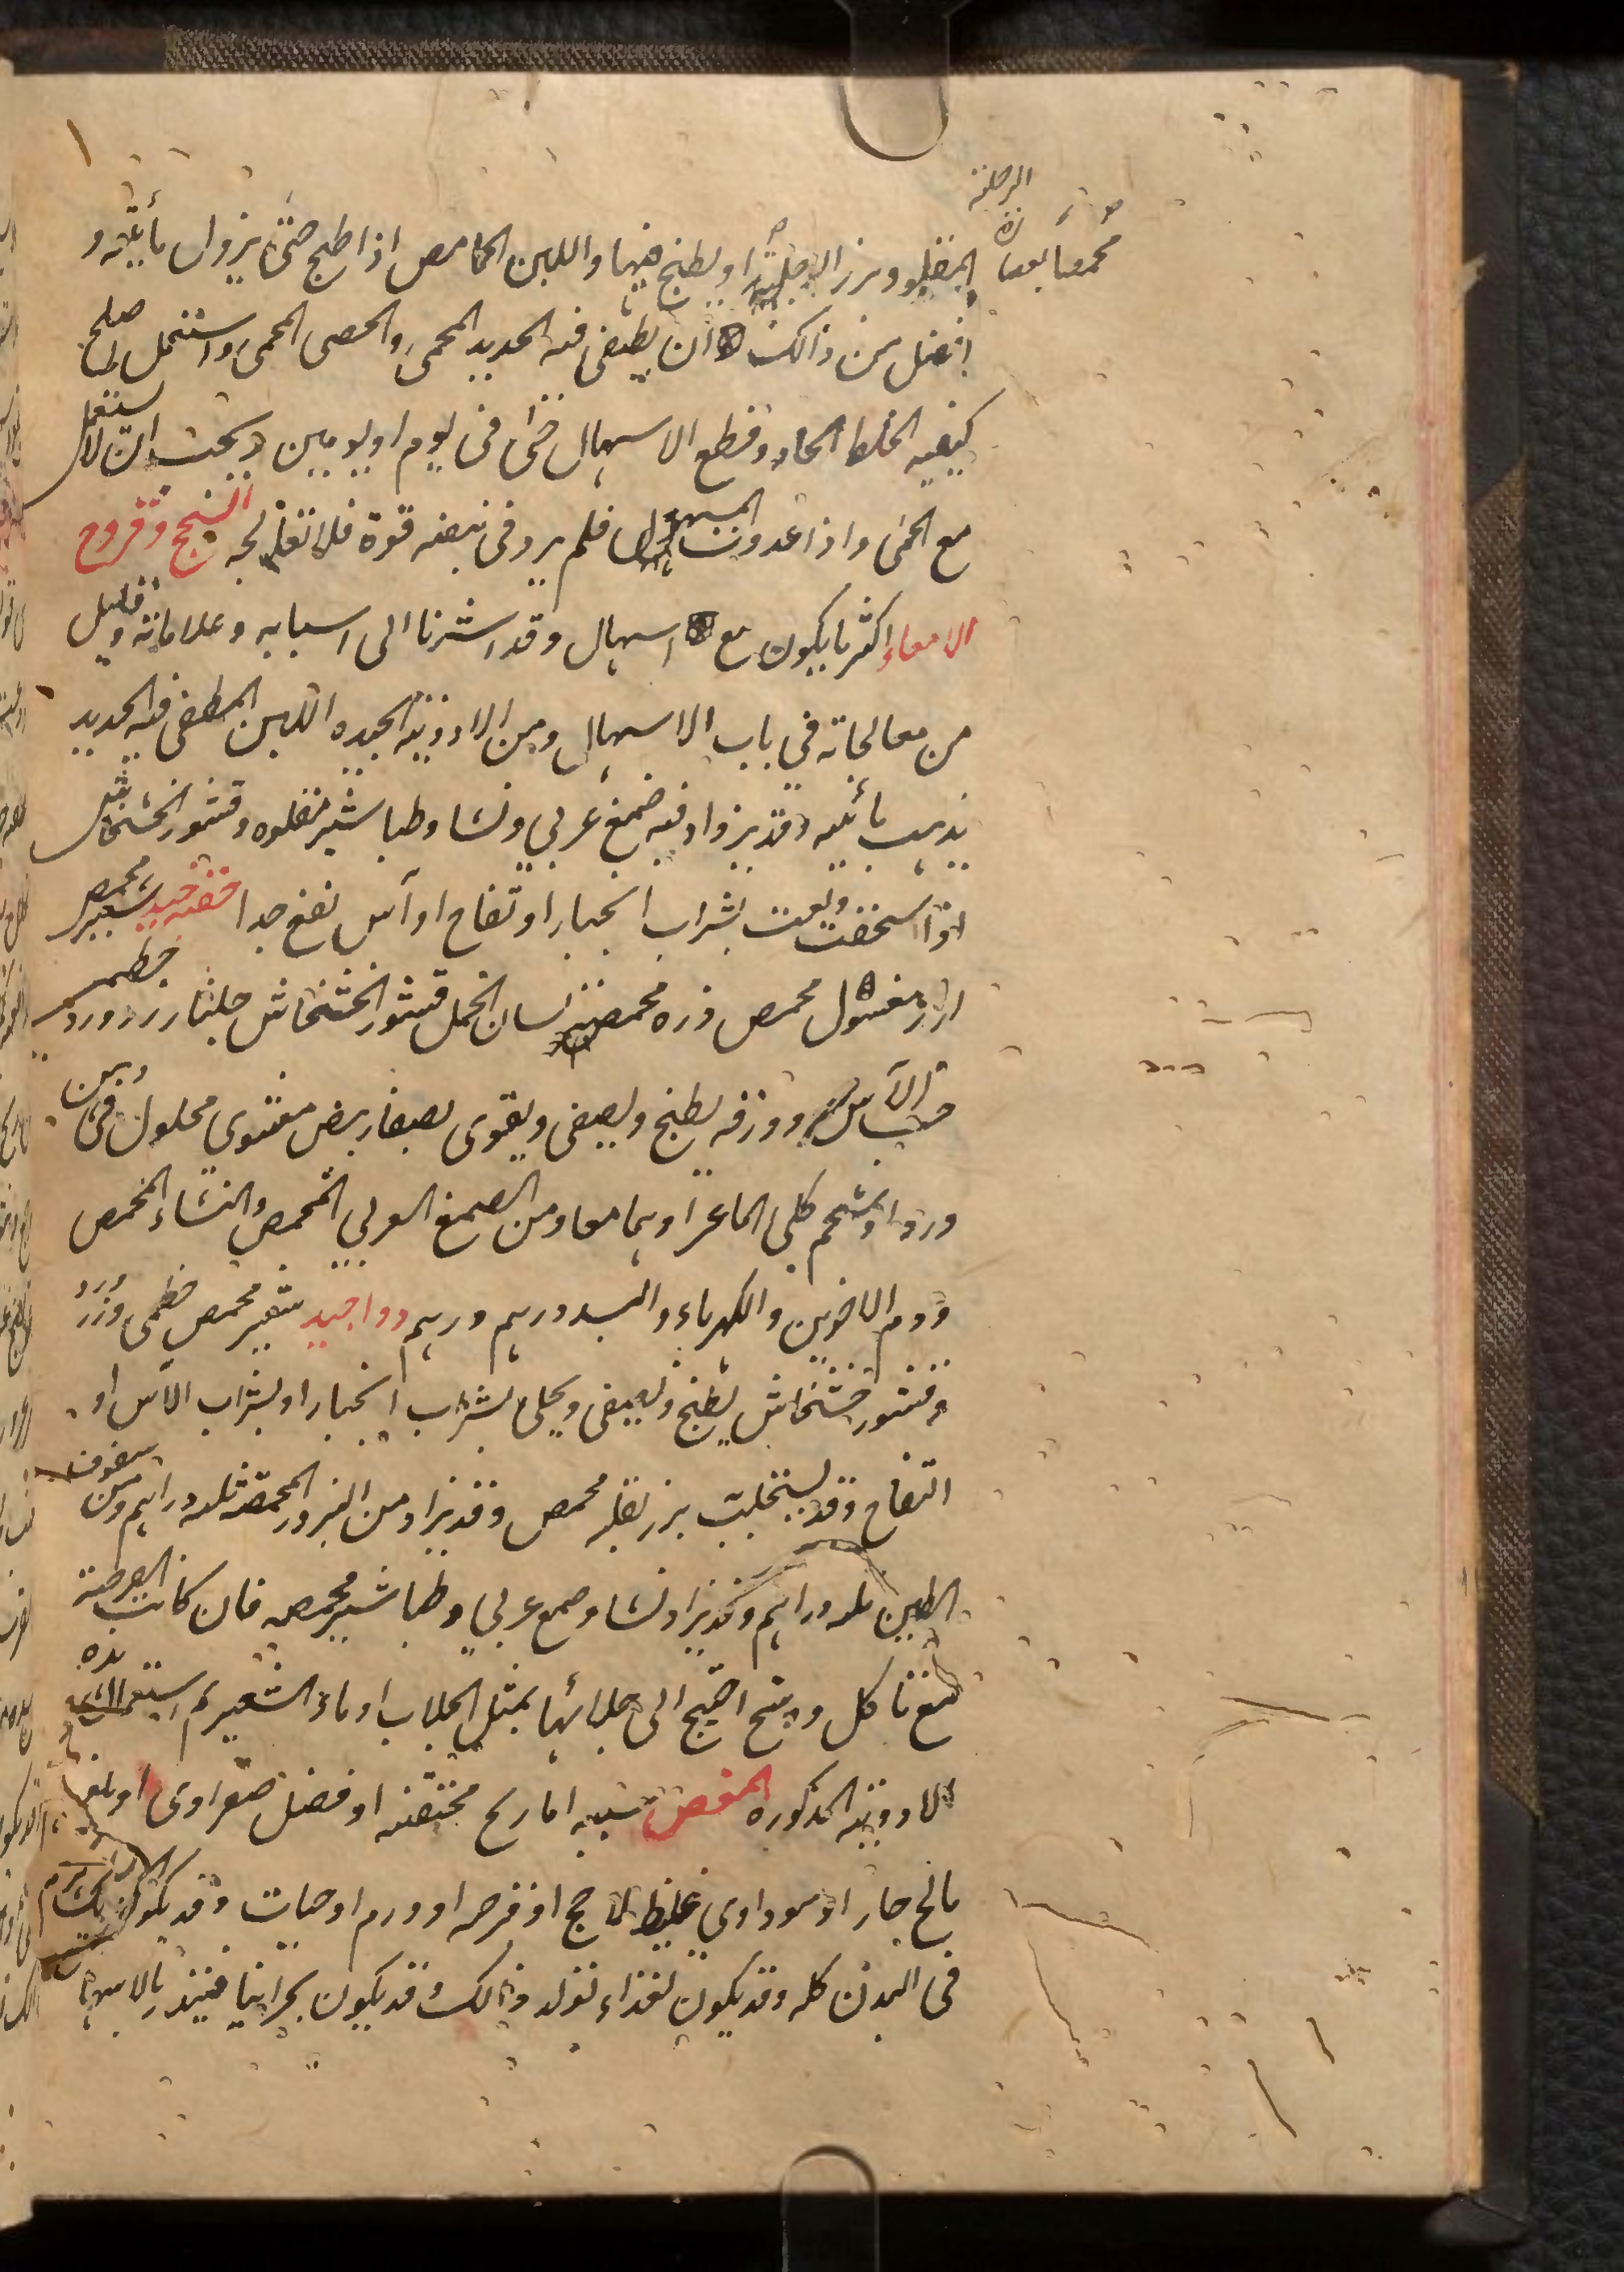 الرجلة
المقلو وبزر الرجلة او يطبخ فيها واللبن الحامض اذا طبخ حتى يزول مأيته و
افضل من ذالك ان يطفى فيه الحديد المحمى والحصى المحمى واستعمل صلح
كيفيه الخلط الحاد وقطع الاسهال حتى فى يوم او يومين ويجب ان لا يستعمل
مع الحمى واذا عدوت المسهول فلم يرد فى نبضه قوة فلا تعالجه السحج وقروح
الامعاء اكثر ما يكون مع اسهال وقد اشرنا الى اسبابه وعلاماته وقليل
من معالجاته فى باب الاسهال ومن الادوية الجيده اللبن المطفى فيه الحديد
يذهب مأئيه وقد يزاد فيه صمغ عربي ونشا وطباشير مقلوه وقشور الخشخاش
اذا سحقت ولعقت بشراب انجبار او تفاح او آس نفع جدا حقنه جيده شعير محمص
ارز مغسول محمص ذره محمصه لسان الحمل قشور الخشخاش جلنار زر ورد خطمى
حب الآس وورقه يطبخ ويصفى ويقوى بصفار بيض مشوى محلول فى دهن
ورد او شحم كلى الماعز او بهما معا ومن الصمغ العربي المحمص والنشاء المحمص
ودم الاخوين والكهرباء والبسد درهم درهم دواء جيد شعير محمص خطمى وزر ورد
وقشور خشخاش يطبخ ويصفى ويحلى بشراب انجبار او بشراب الآس او
التفاح وقد يستحلب بزر بقله محمص وقد يزاد من البزور المحمصه ثلثه دراهم ومن سفوف
الطين ثلثه دراهم وقد يزاد نشا وصمغ عربي وطباشير محمصه فان كانت القرحة
مع تاكل ووسخ احتيج الى جلائها بمثل الجلاب او ماء الشعير ثم استعمال هذه
الادوية المذكوره المغص سببه اما ريح محتقنه او فضل صفراوى او بلغم
مالح حار او سوداوى غليظ لاحج او قرحه او ورم او حيات وقد يكون
فى البدن كله وقد يكون لغذاء تولد ذالك وقد يكون بحرانيا فينذر بالاسهال